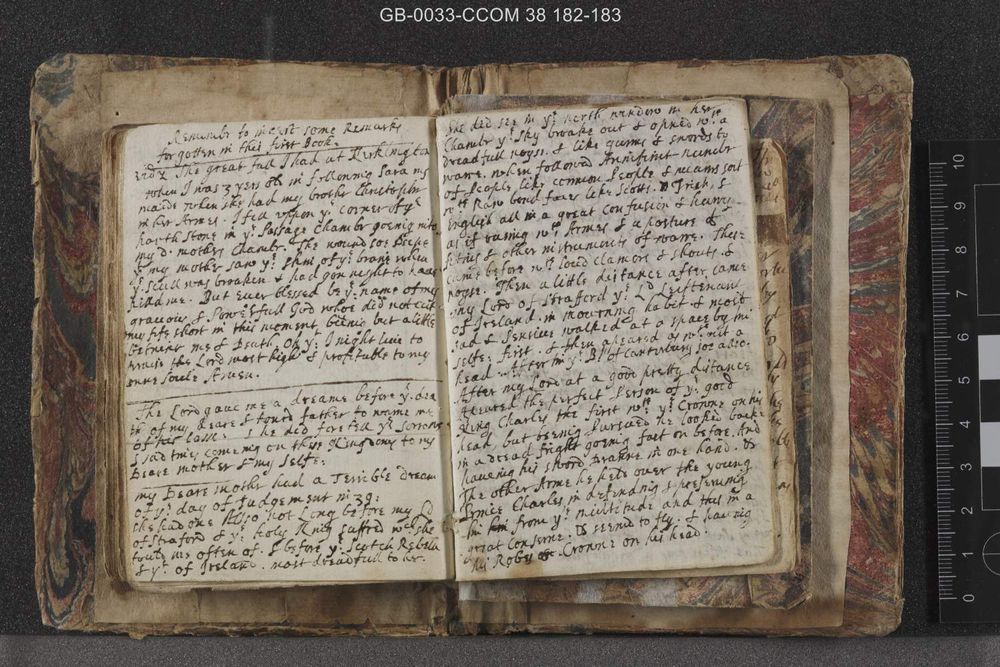 GB-0033-CCOM 38 182-183
Remember to insert some Remarks
forgotten in this first Book.
vidz The great fall I had at Kirklington
when I was 3 years old in following Sara my
maide when she had my brother Christopher
in her Armes. I fell uppon yᵉ corner of yᵉ
harth stone in yᵉ Passage chamber goeing into
my d: mothers Chamber. The wound soe deepe
yᵗ my mother saw yᵉ skin of yᵉ braine when
yᵉ scull was broaken. I had gon nyght to haue
killd me. But euer blessed be yᵉ name of my
gracious & Powerfull God whoe did not cut
my life short in this moment, beeinig but a little
betwixt me & Death. Oh yᵗ I might liue to
Praise the Lord most high & profitable to my
owne Soule Amen.
The Lord gaue me a dreame before yᵉ dea
th of my Deare & Hond father to warne me
of his losse. & he did foretell yᵉ sorrows
& sad times comeing on these Kingdoms to my
Deare mother & my selfe.
my Deare mother had a Terrible dream
of yᵉ day of Judgement in 39:
she had one Allso not Long before my Ld
of Straford & yᵉ Holy King suffred wᶜʰ she
tould me often of. & before yᵉ Scotch Rebelli
& yᵗ of Ireland. most dreadfull to her.
she did see in yᵉ north window in her
Chamber yᵉ sky broake out & opned wᵗʰ a
dreadfull noyse. & like gunns & swords to
warre. when followed An infinit number
of People, like common People & meane sort
wᵗʰ Raw bond faces like Scotts. & Irish, &
English all in a great confusion & hurry
as if raising wᵗʰ Armes & a posture of
& other instruments of warre. These
came before wᵗʰ loud clamors & shouts, &
noyse. Then a little distance after came
my Lord of Strafford yᵉ Ld Leiftenant
of Ireland. in mourning habit & most
sad & Pensive walked at a space by him
selfe: first. & then apeared as without a
head. After in yᵉ Bp of Canterbury soe also.
After my Lord at a good pretty distance
Apeared the perfect Person of yᵉ good
King Charles the first wᵗʰ yᵉ Crowne on his
head. but beeinig pursued he looked backe
in a dread fright goeing fast on before. And
haueing his sword drawne in one hand. &
The other Arme he held over the young
Prince Charles in defendinig & preserueinig
him from yᵉ multitude and thus in a
great Conserne: & seemd to fly. & haueing
his Robes & Crowne on his head.
10
9
8
7
6
5
4
3
2
1
0